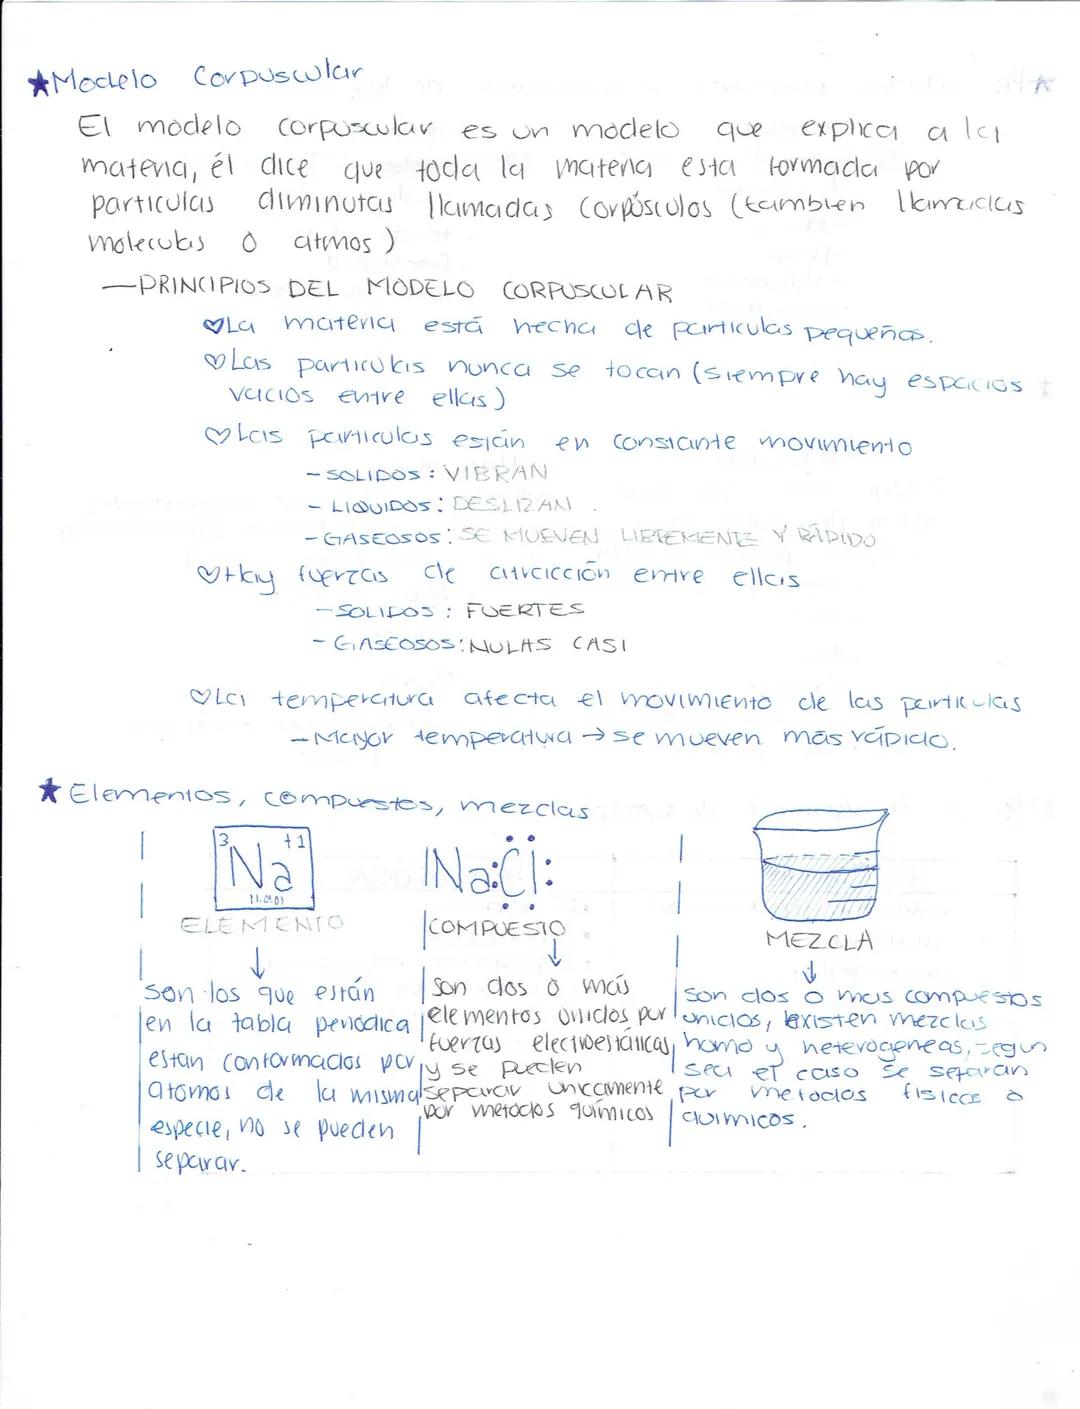 ★Modelo Corpuscular
El modelo corpuscular es un modelo que explica a la
materia, él dice que toda la materia esta formada por
particulas diminutas llamadas corpúsculos (tambien llamadas
moleculas o atmos)
—PRINCIPIOS DEL MODELO CORPUSCULAR
♡La materia está hecha de particulas pequeñas.
♡Las particulas nunca se tocan (siempre hay espacios
vacios entre ellas)
♡Las particulas están en constante movimiento
- SOLIDOS: VIBRAN
- LIQUIDOS: DESLIZAN.
- GASEOSOS: SE MUEVEN LIBREMENTE Y RÁPIDO
♡Hay fuerzas de atracción entre ellas
- SOLIDOS: FUERTES
- GASEOSOS: NULAS CASI
♡La temperatura afecta el movimiento de las particulas
- Mayor temperatura → se mueven más rápido.
★Elementos, compuestos, mezclas
3 +1
Na
11.
ELEMENTO
↓
Son los que están
en la tabla periodica
estan conformados por
atomos de la misma
especie, no se pueden
separar.
Na:Cl:
COMPUESTO
↓
Son dos o más
elementos unidos por
fuerzas electroestáticas,
y se pueden
separar unicamente
por metodos químicos
MEZCLA
↓
Son dos o mas compuestos
unidos, existen mezclas
homo y heterogeneas, segun
sea el caso se separan
por metodos fisicos o
quimicos.